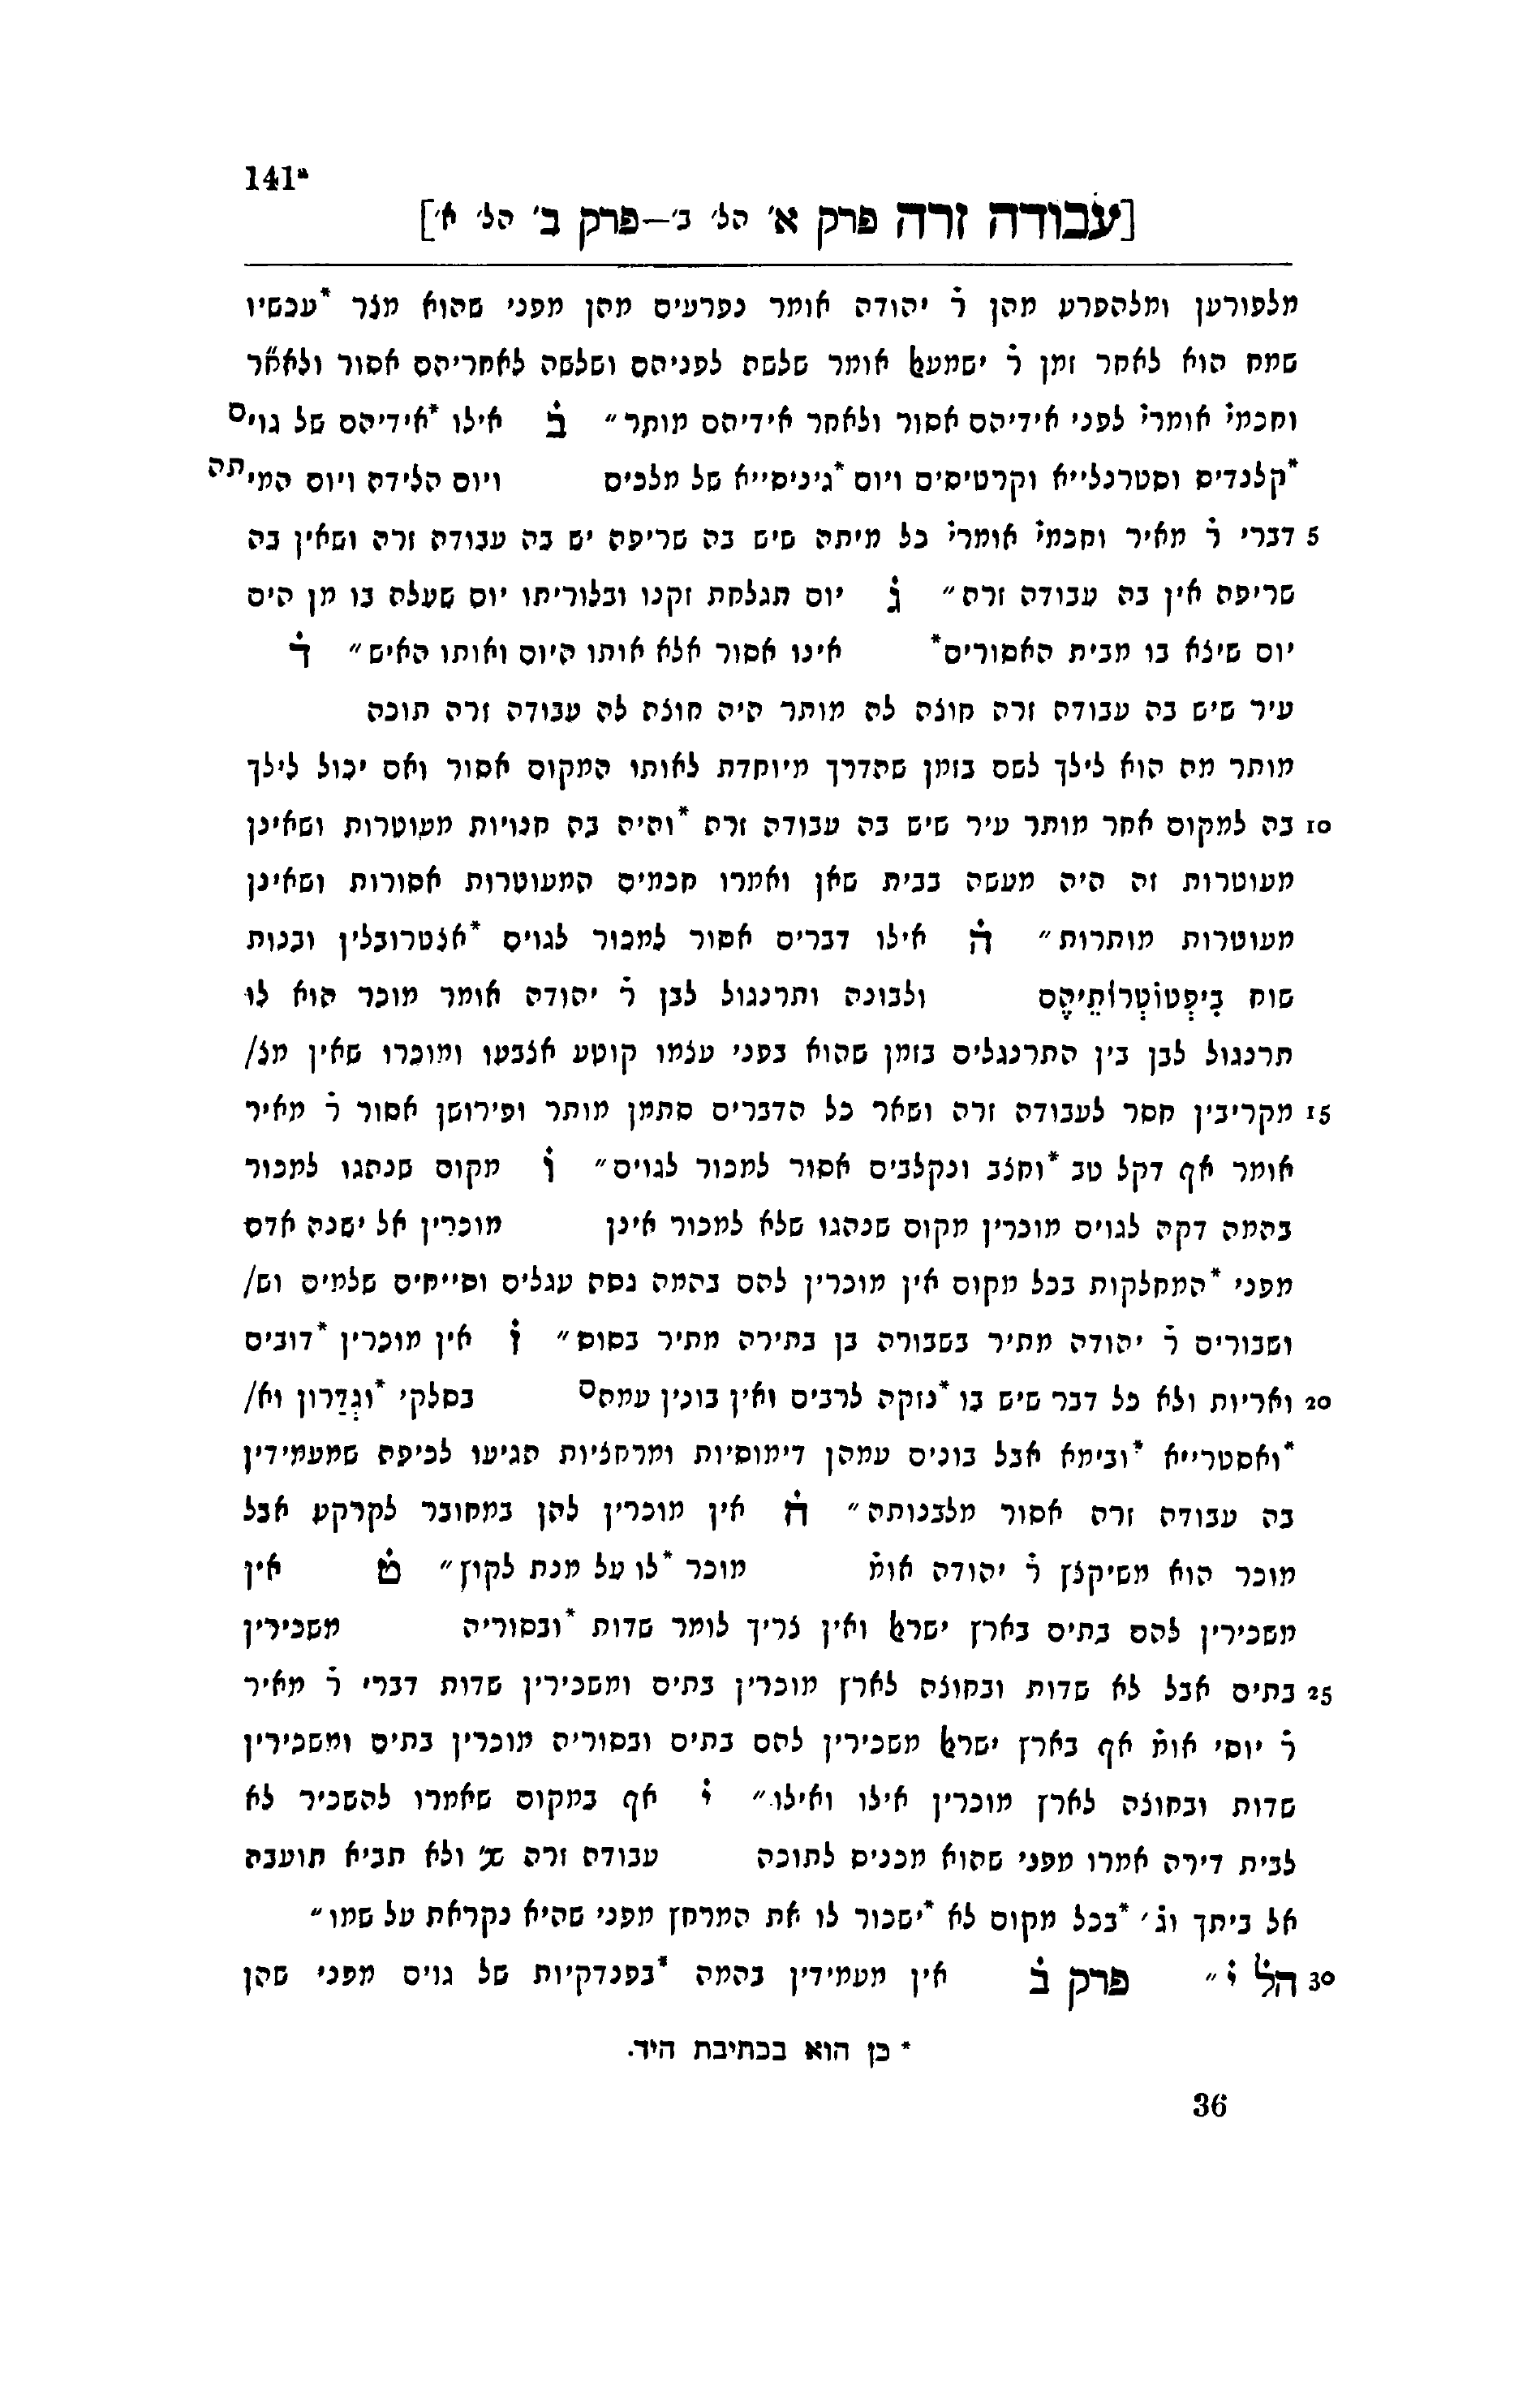 141ª
[עבודה זרה פרק א' הל' ב'—פרק ב' הל' א']
מלפורען ומלהפרע מהן ר׳ יהודה אומר נפרעים מהן מפני שהוא מצר *עכשיו
שמח הוא לאחר זמן ר׳ ישמעאל אומר שלשה לפניהם ושלשה לאחריהם אסור ולאח״ר
וחכמי׳ אומרי׳ לפני אידיהם אסור ולאחר אידיהם מותר״ ב אילו *אידיהם של גוים
*קלנדיס וסטרנלייא וקרטיסים ויום *גיניסייא של מלכים ויום הלידה ויום המיתה
5 דברי ר׳ מאיר וחכמי׳ אומרי׳ כל מיתה שיש בה שריפה יש בה עבודה זרה ושאין בה
שריפה אין בה עבודה זרה״ ג יום תגלחת זקנו ובלוריתו יום שעלה בו מן הים
יום שיצא בו מבית האסורים* אינו אסור אלא אותו היום ואותו האיש״ ד
עיר שיש בה עבודה זרה חוצה לה מותר היה חוצה לה עבודה זרה תוכה
מותר מה הוא לילך לשם בזמן שהדרך מיוחדת לאותו המקום אסור ואם יכול לילך
10 בה למקום אחר מותר עיר שיש בה עבודה זרה *והיה בה חנויות מעוטרות ושאינן
מעוטרות זה היה מעשה בבית שאן ואמרו חכמים המעוטרות אסורות ושאינן
מעוטרות מותרות״ ה אילו דברים אסור למכור לגוים *אצטרובלין ובנות
שוח ולבונה ותרנגול לבן ר׳ יהודה אומר מוכר הוא לו
תרנגול לבן בין התרנגלים בזמן שהוא בפני עצמו קוטע אצבעו ומוכרו שאין מצ/
15 מקריבין חסר לעבודה זרה ושאר כל הדברים סתמן מותר ופירושן אסור ר׳ מאיר
אומר אף דקל טב *וחצב ונקלבים אסור למכור לגוים״ ו מקום שנהגו למכור
בהמה דקה לגוים מוכרין מקום שנהגו שלא למכור אינן מוכרין אל ישנה אדם
מפני *המחלקות בכל מקום אין מוכרין להם בהמה גסה עגלים וסייחים שלמים וש/
ושבורים ר׳ יהודה מתיר בשבורה בן בתירה מתיר בסוס״ ז אין מוכרין *דובים
20 ואריות ולא כל דבר שיש בו *נזקה לרבים ואין בונין עמהם בסלקי *וגְדַרון וא/
*ואסטרייא *ובימא אבל בונים עמהן דימוסיות ומרחציות הגיעו לכיפה שמעמידין
בה עבודה זרה אסור מלבנותה״ ח אין מוכרין להן במחובר לקרקע אבל
מוכר הוא משיקצץ ר׳ יהודה אומ׳ מוכר *לו על מנת לקוץ״ ט אין
משכירין להם בתים בארץ ישראל ואין צריך לומר שדות *ובסוריה משכירין
25 בתים אבל לא שדות ובחוצה לארץ מוכרין בתים ומשכירין שדות דברי ר׳ מאיר
ר׳ יוסי אומ׳ אף בארץ ישראל משכירין להם בתים ובסוריה מוכרין בתים ומשכירין
שדות ובחוצה לארץ מוכרין אילו ואילו.״ י אף במקום שאמרו להשכיר לא
לבית דירה אמרו מפני שהוא מכניס לתוכה עבודה זרה שנ׳ ולא תביא תועבה
אל ביתך וג׳ *בכל מקום לא *ישכור לו את המרחץ מפני שהיא נקראת על שמו״
30 הל׳ י״ פרק ב אין מעמידין בהמה *בפנדקיות של גוים מפני שהן
* כן הוא בכתיבת היד.
36